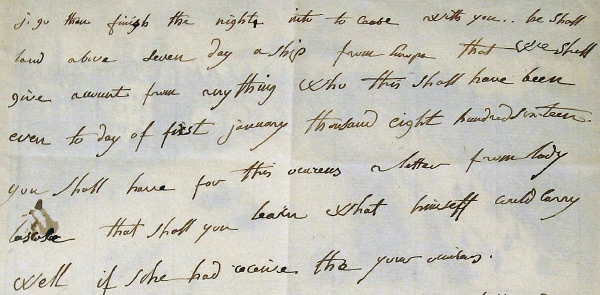 j. go than finish the night, into to cause with you.. he shall
land above seven day a ship from Europe that we shall
give account from anything who this shall have been
even to day of first january thousand eight hundred sixteen.
you shall have for this occurens a letter from lady
that shall you learn what himself could carry
well if she had receive the your occurens.